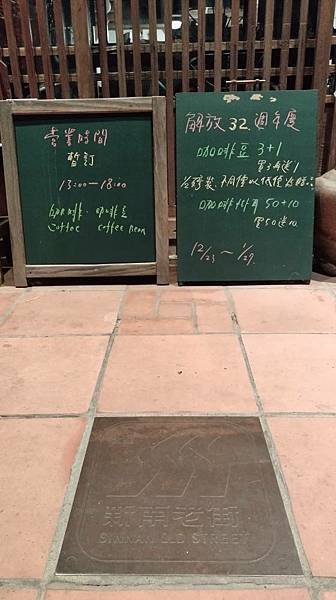 營業時間
暫訂
13:00—18:00
咖啡. 咖啡豆
Coffee coffee Bean
解放 32.週年慶
咖啡豆 3+1
買3送1
不同價以低價為贈
50+10
買50送10
12/23 ~ 1/29.
新南老街
SINNAN OLD STREET